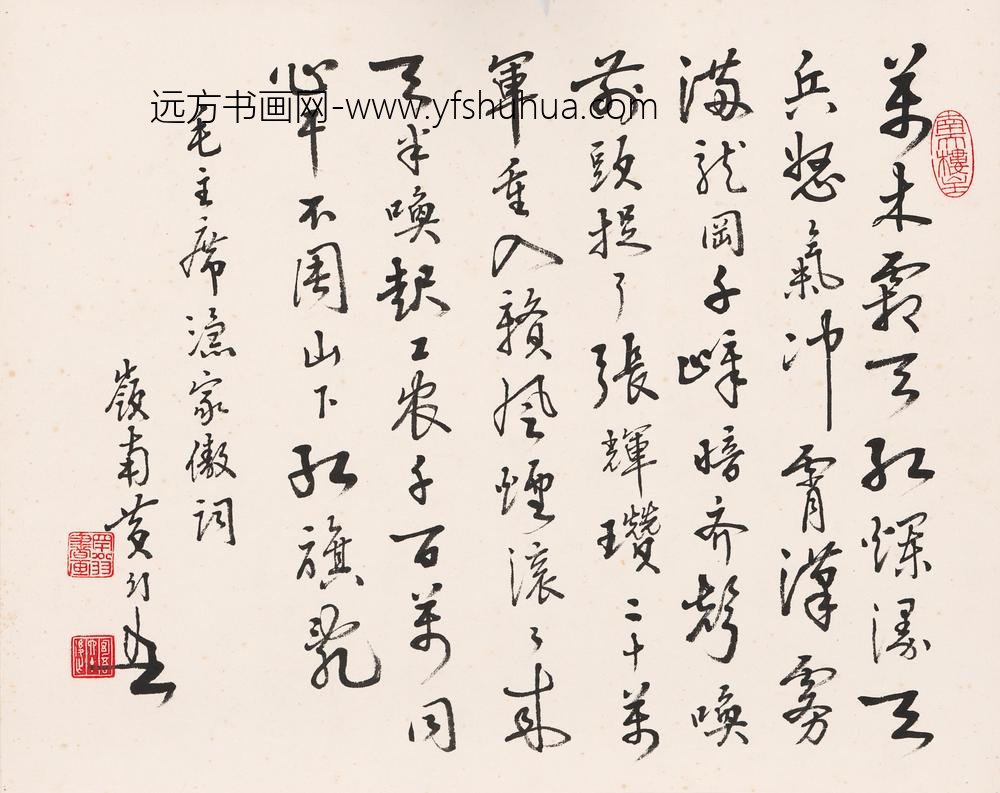 萬木霜天红爛漫天
兵怒氣冲霄漢霧
滿龍岡千嶂暗齐聲喚
前頭捉了張輝瓚二十萬
軍重入贛風煙滾々来
天半喚起工农千百萬同
心干不周山下红旗亂
毛主席漁家傲詞
嶺南黄幻吾
远方书画网-www.yfshuhua.com